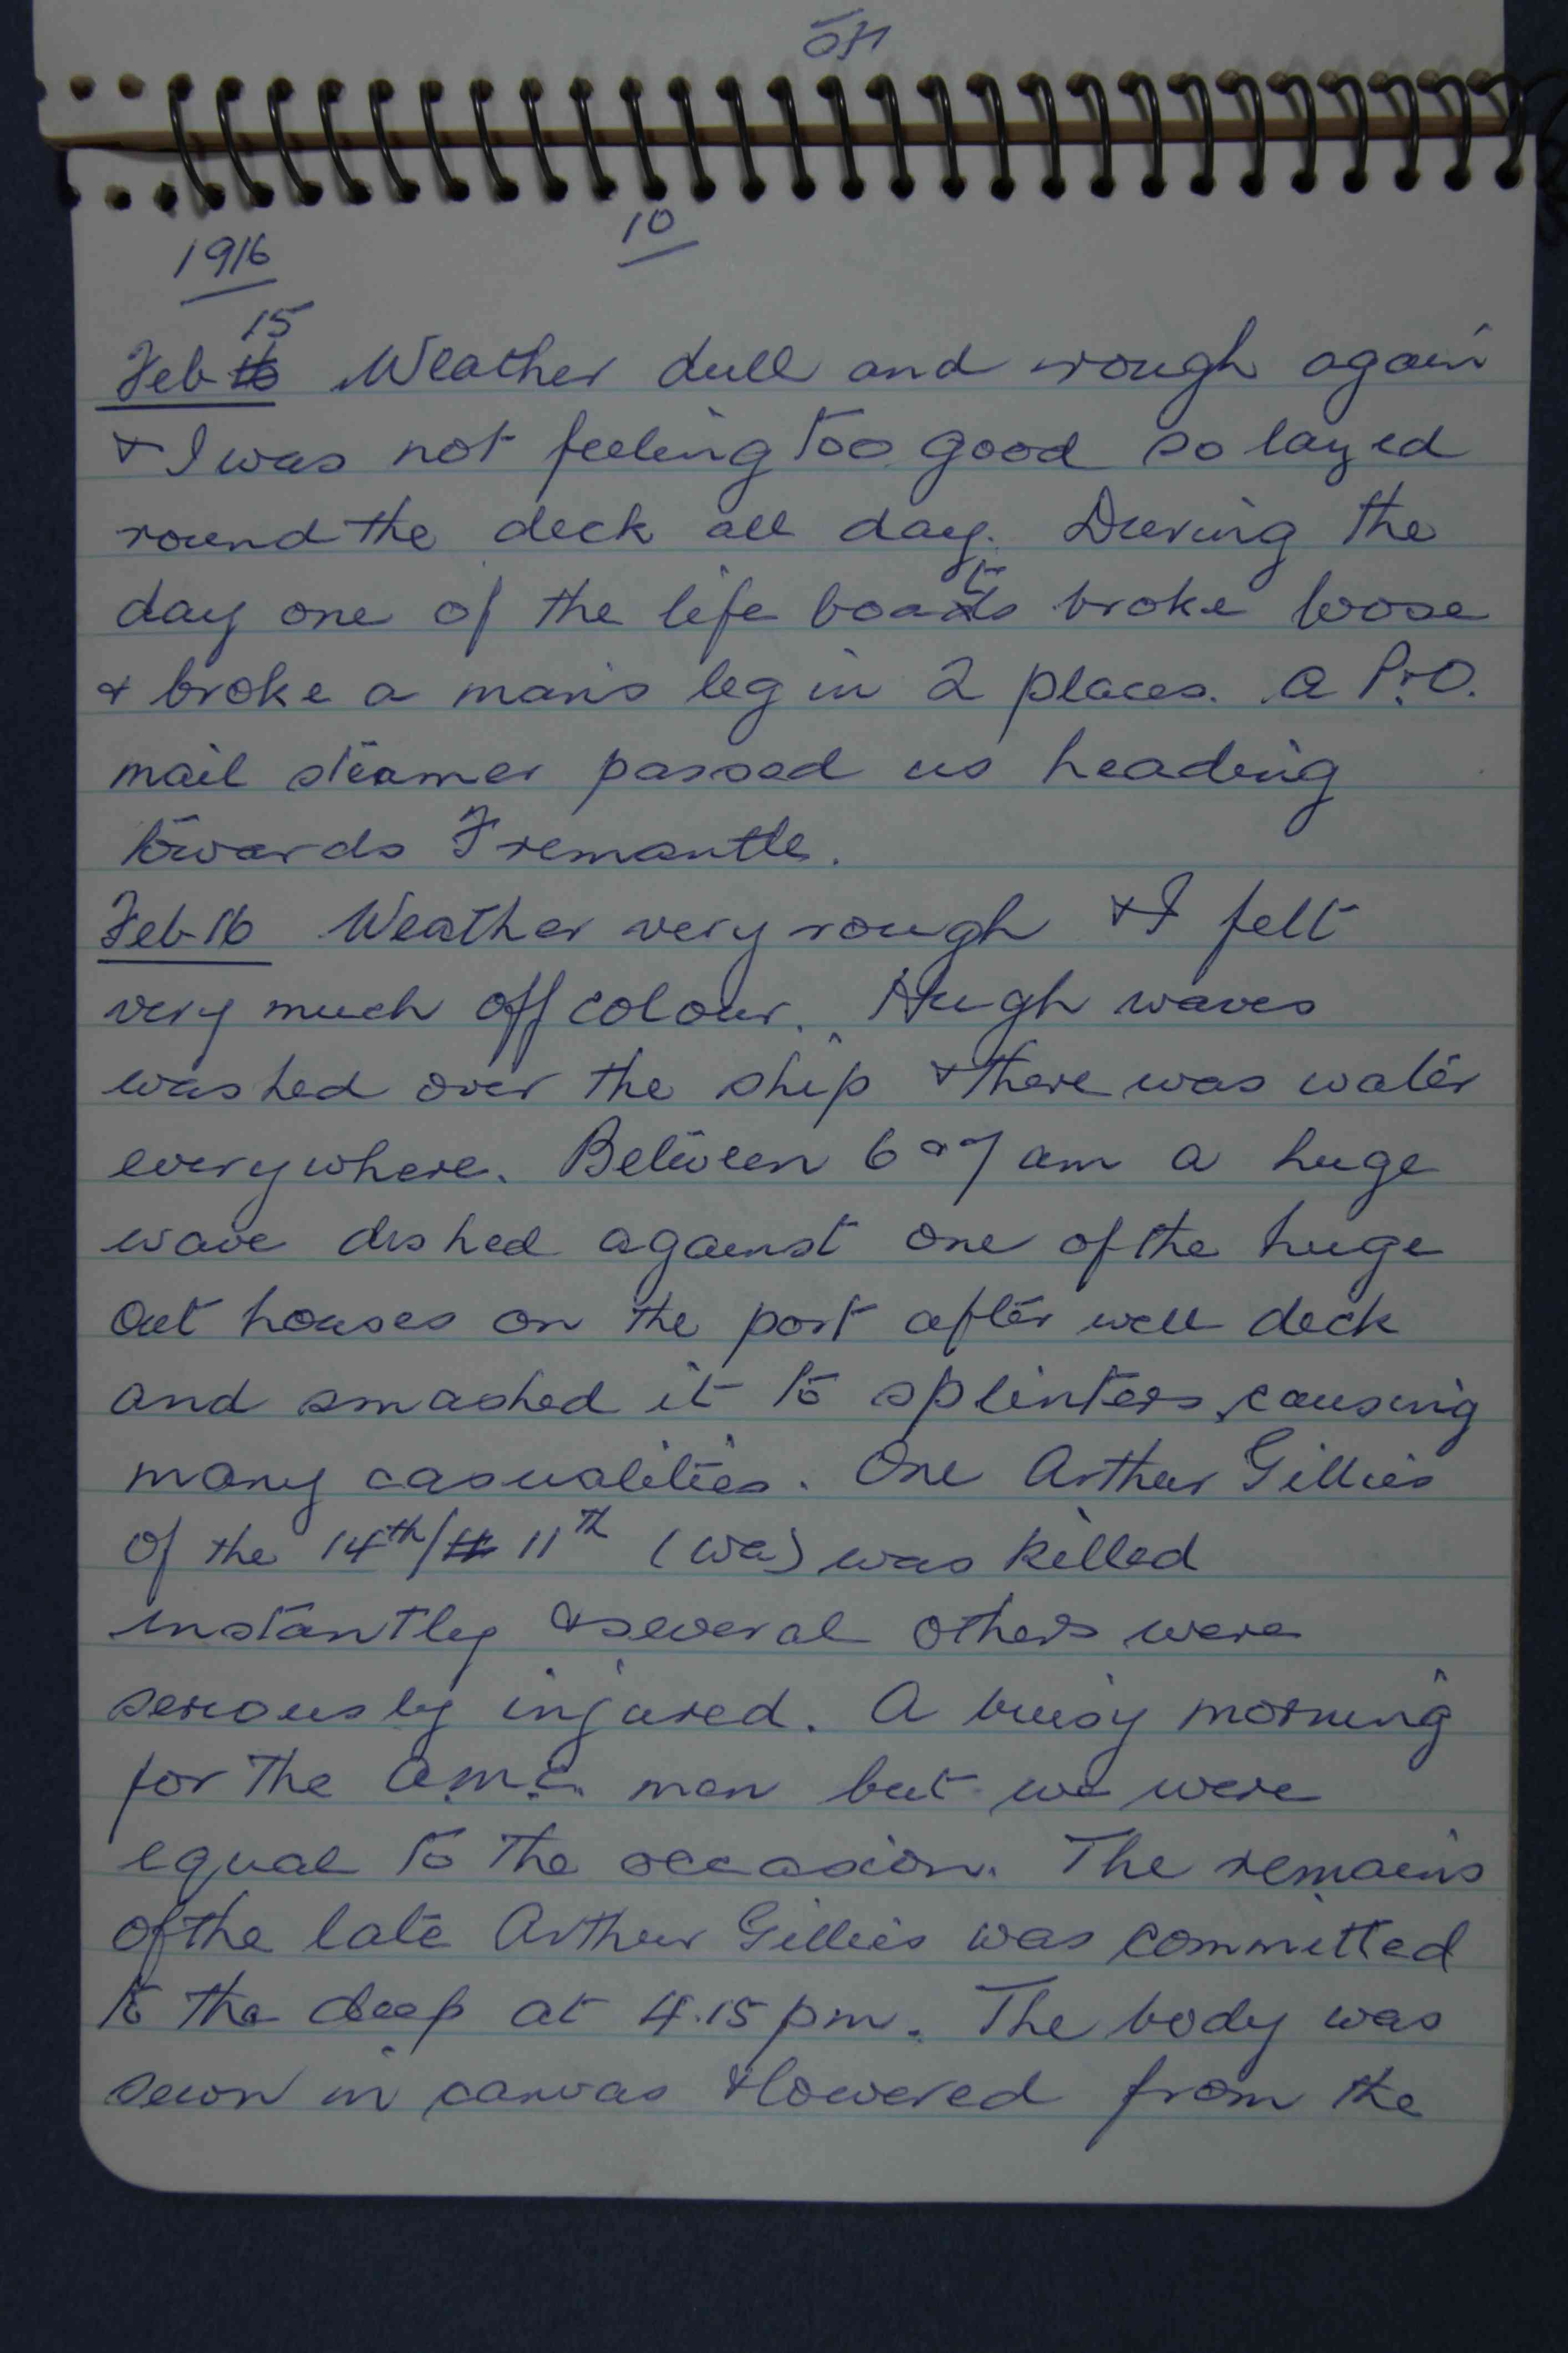 10
1916
15
Feb 16 Weather dull and rough again
& I was not feeling too good so layed
round the deck all day. During the
day one of the life boats broke loose
& broke a man's leg in 2 places. A P&O.
mail steamer passed us heading
towards Fremantle.
Feb 16 Weather very rough & I felt
very much off colour. Hugh waves
washed over the ship & there was water
everywhere. Between 6 & 7 am a huge
wave dished against one of the huge
out houses on the port after well deck
and smashed it to splinters, causing
many casualities. One Arthur Gillies
of the 14th/ 11th (WA) was killed
instantly & several others were
seriously injured. A buisy morning
for the A.M.C. men but we were
equal to the occasion. The remains
of the late Arthur Gillies was committed
to the deep at 4.15 pm. The body was
sewn in canvas & lowered from the